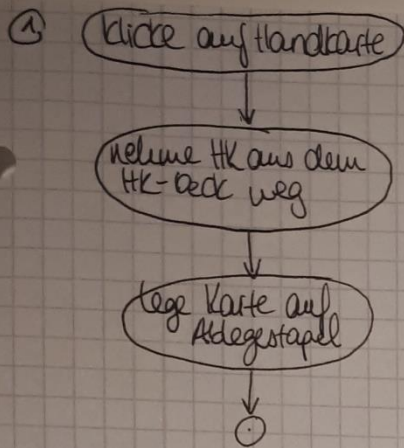 1
klicke auf Handkarte
nehme HK aus dem
HK-Deck weg
lege Karte auf
Ablegestapel